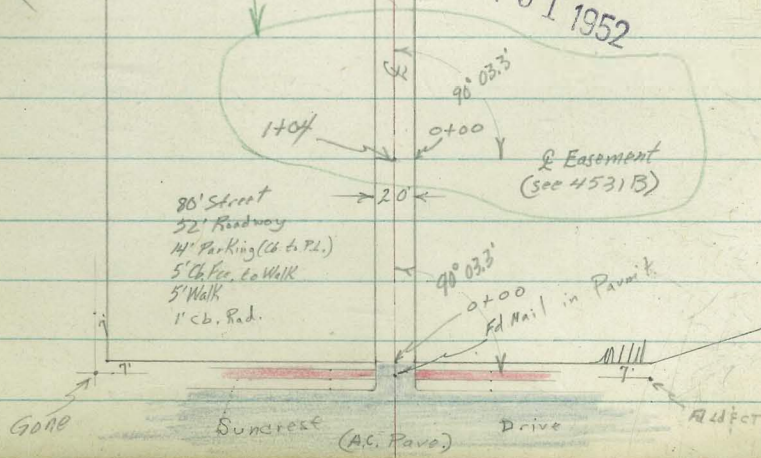 1 1952
90° 03.3'
1+04
0+00
℄ Easement
(see 4531B)
20'
80' Street
52' Roadway
14' Parking (Cb. to P.L.)
5' Cb. Fce. to Walk
5' Walk
1' Cb. Rad.
90° 03.3'
0+00
Fd Nail in Pavm't
7'
7'
7'
Gone
Suncrest Drive
(A.C. Pave.)